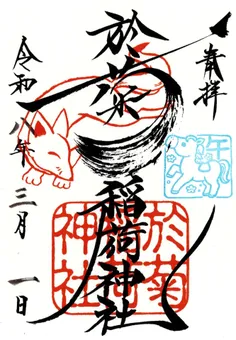 奉拝
於菊稲荷神社
於菊稲荷神社
午
令和八年三月一日